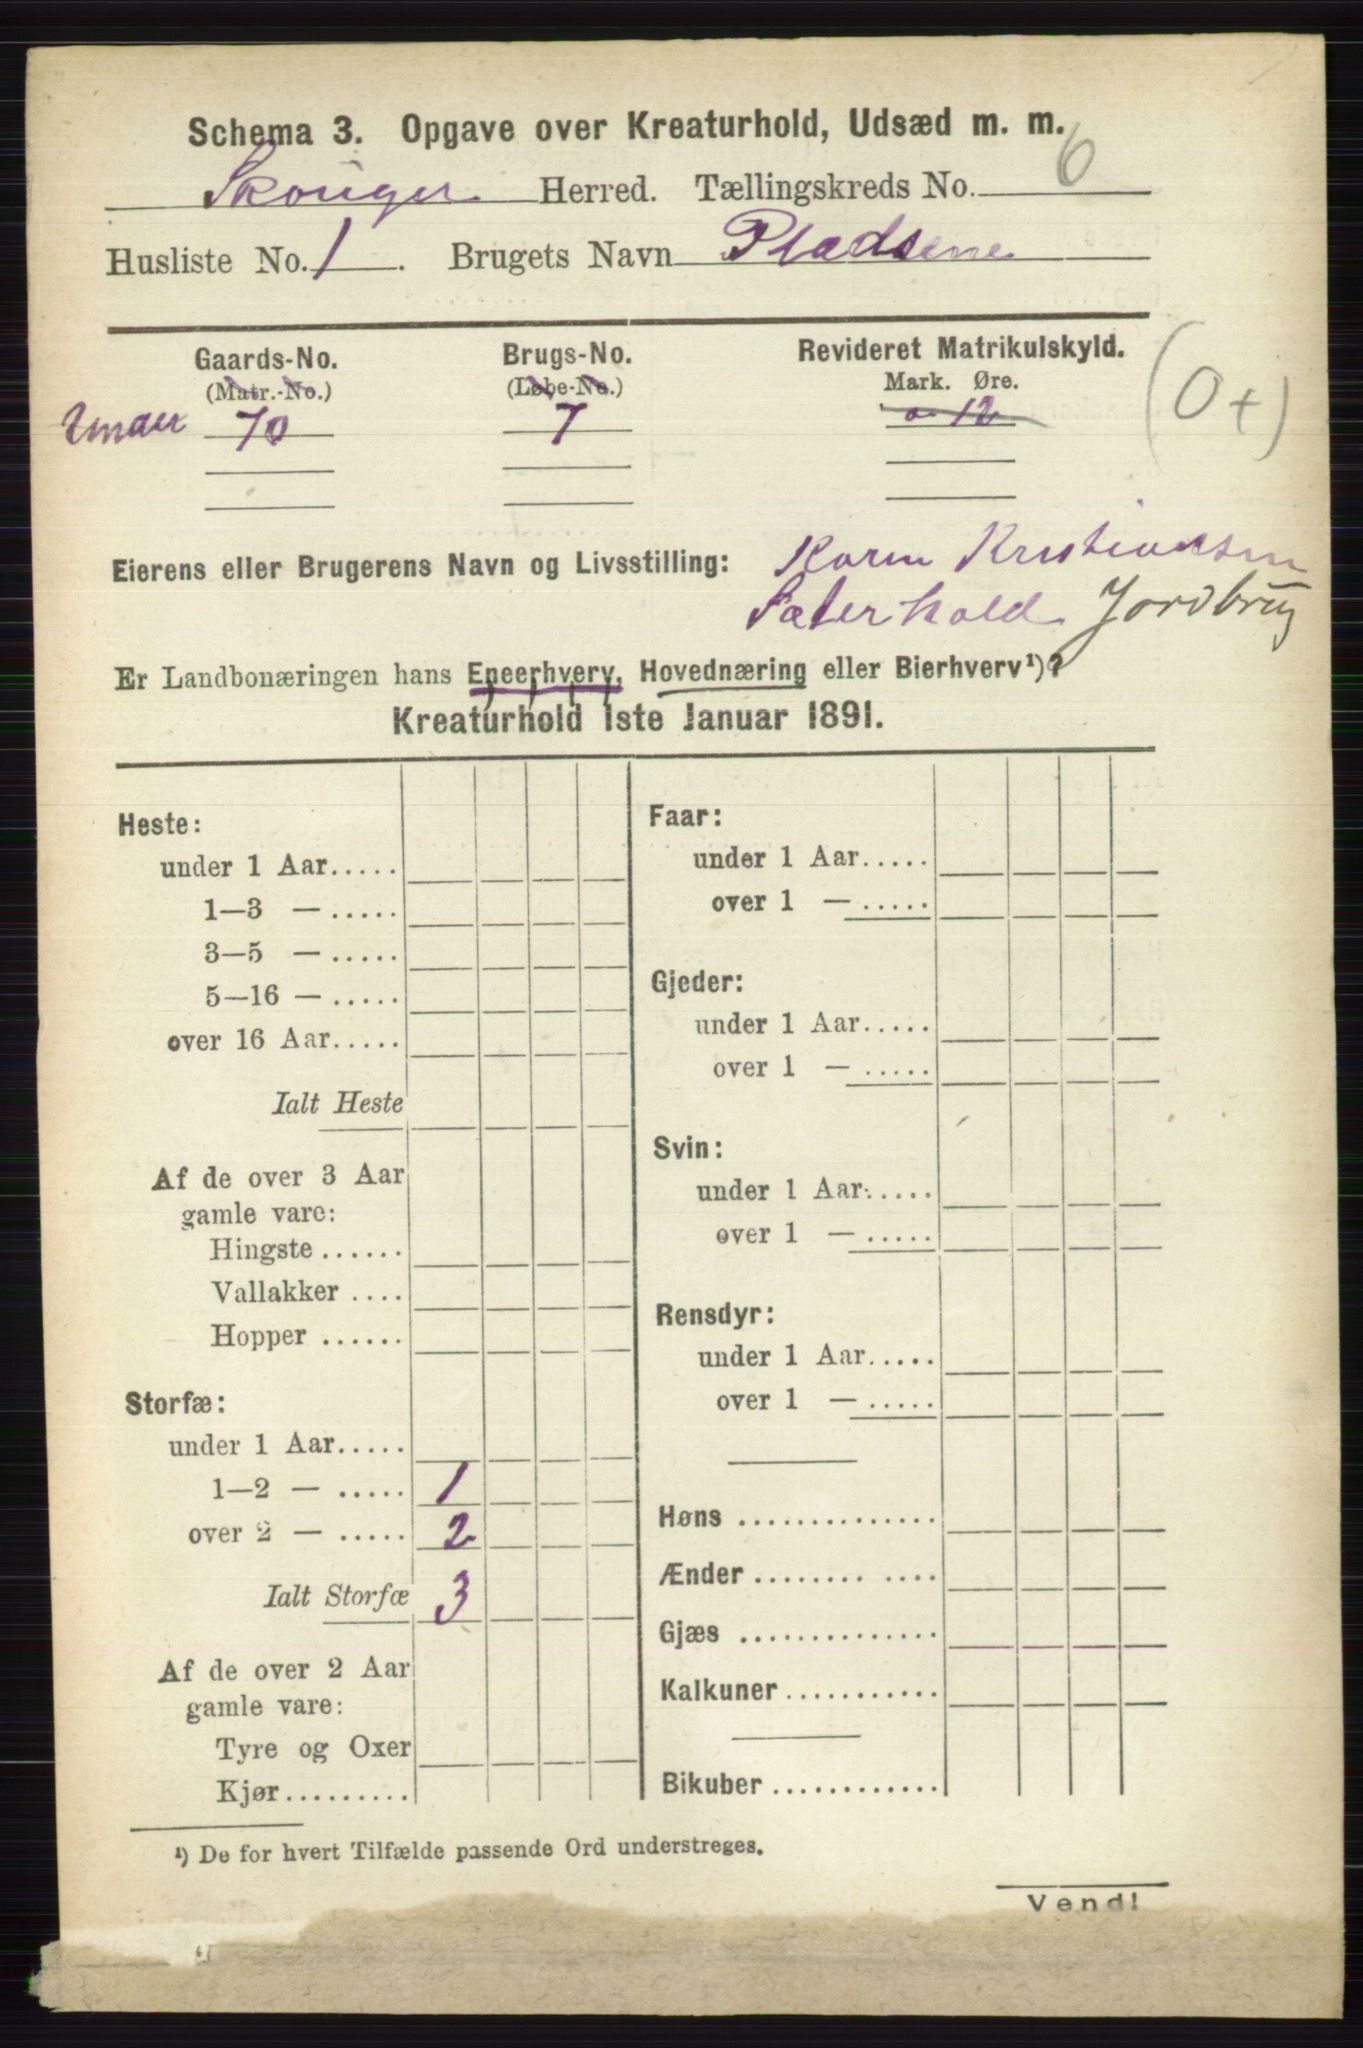 Schema 3. Opgave over Kreaturhold, Udsæd m. m.
Skouger Herred. Tællingskreds No. 6
Husliste No. 1. Brugets Navn Pladsene
Gaards-No. Brugs-No. Revideret Matrikulskyld.
(Matr.-No.) (Løbe-No.) Mark. Øre.
Under 70 7 0 12 (0+)
Eierens eller Brugerens Navn og Livsstilling: Karen Kristiansen
Føderhold Jordbrug
Er Landbonæringen hans Eneerhverv, Hovednæring eller Bierhverv¹)?
Kreaturhold 1ste Januar 1891.
Heste:
under 1 Aar.....
1—3 — .....
3—5 — .....
5—16 — .....
over 16 Aar.....
Ialt Heste
Af de over 3 Aar
gamle vare:
Hingste ......
Vallakker ....
Hopper ......
Storfæ:
under 1 Aar.....
1—2 — ..... 1
over 2 — ..... 2
Ialt Storfæ 3
Af de over 2 Aar
gamle vare:
Tyre og Oxer
Kjør.........
Faar:
under 1 Aar.....
over 1 — .....
Gjeder:
under 1 Aar.....
over 1 — .....
Svin:
under 1 Aar.....
over 1 — .....
Rensdyr:
under 1 Aar.....
over 1 — .....
Høns ..............
Ænder ........ ....
Gjæs ..............
Kalkuner...........
Bikuber ............
¹) De for hvert Tilfælde passende Ord understreges.
Vend!